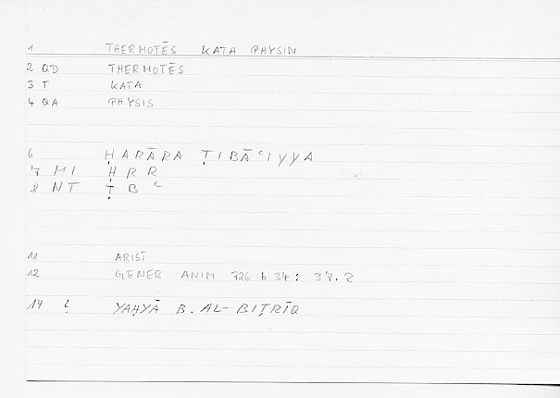 1 THERMOTĒS KATA PHYSIN
2 QD THERMOTĒS
3 T KATA
4 QA PHYSIS
6 ḤARĀRA ṬIBĀʿIYYA
7 MI ḤRR
8 NT ṬBʿ
11 ARIST
12 GENER ANIM 726 b 34 : 37.2
14 YAḤYĀ B. AL-BIṬRĪQ